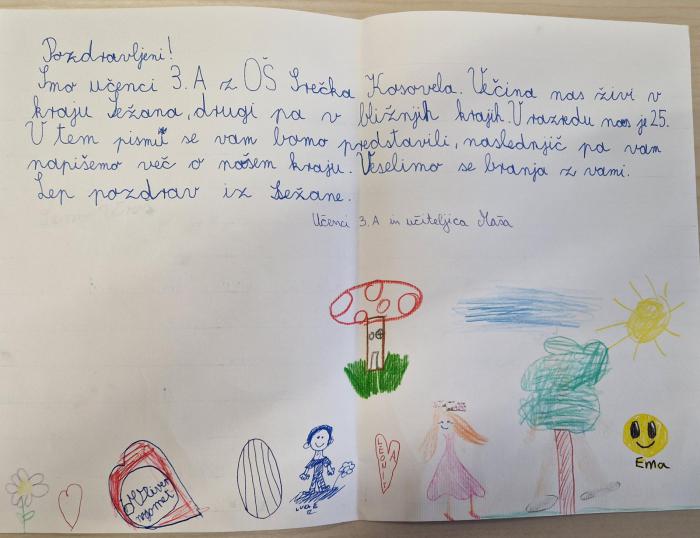 Pozdravljeni!
Smo učenci 3. A z OŠ Srečka Kosovela. Večina nas živi v
kraju Sežana, drugi pa v bližnjih krajih. V razredu nas je 25.
V tem pismu se vam bomo predstavili, naslednjič pa vam
napišemo več o našem kraju. Veselimo se branja z vami.
Lep pozdrav iz Sežane.
Učenci 3. A in učiteljica Maša
Ema